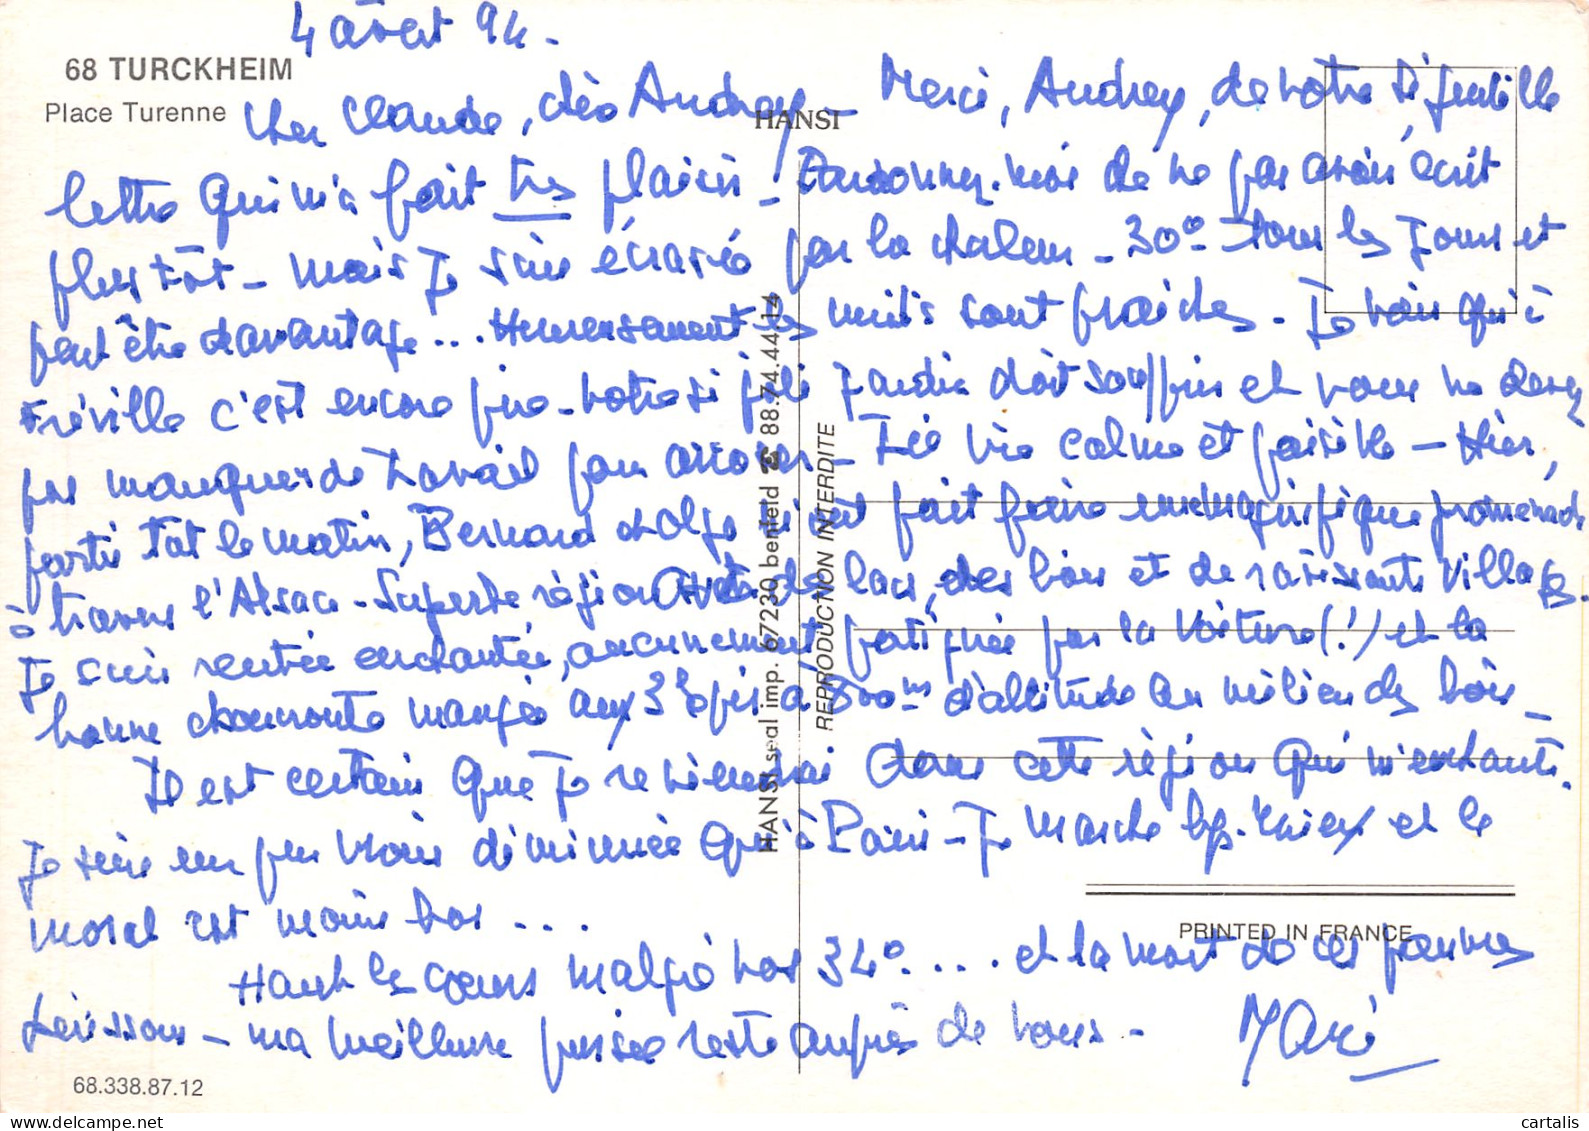 4 août 94 -
68 TURCKHEIM
Place Turenne
HANSI
Cher Claude, chère Audrey - Merci, Audrey, de votre si gentille
lettre qui m'a fait très plaisir - Pardonnez-moi de ne pas avoir écrit
plus tôt - mais je suis écrasée par la chaleur - 30° tous les jours et
peut être davantage ... Heureusement les nuits sont fraîches. Je vois qu'à
Fréville c'est encore pire - votre si joli jardin doit souffrir et vous ne devez
pas manquer de travail pour arroser - Ici vie calme et paisible - Hier,
partis tôt le matin, Bernard et Olga m'ont fait faire une magnifique promenade
à travers l'Alsace - Superbe région de lacs, des bois et de ravissants villages.
Je suis rentrée enchantée, aucunement fatiguée par la voiture (!) et la
bonne choucroute mangée aux 3 Épis à 800m d'altitude au milieu des bois -
Il est certain que je reviendrai dans cette région qui m'enchante.
Je suis un peu moins diminuée qu'à Paris - Je marche bp. mieux et le
moral est moins bas ...
Haut les cœurs malgré vos 34° .... et la mort de ces pauvres
- ma meilleure pensée reste auprès de vous -
HANSI seal imp. 67230 benfeld ☎ 88.74.44.14
REPRODUCTION INTERDITE
PRINTED IN FRANCE
68.338.87.12
cartalis